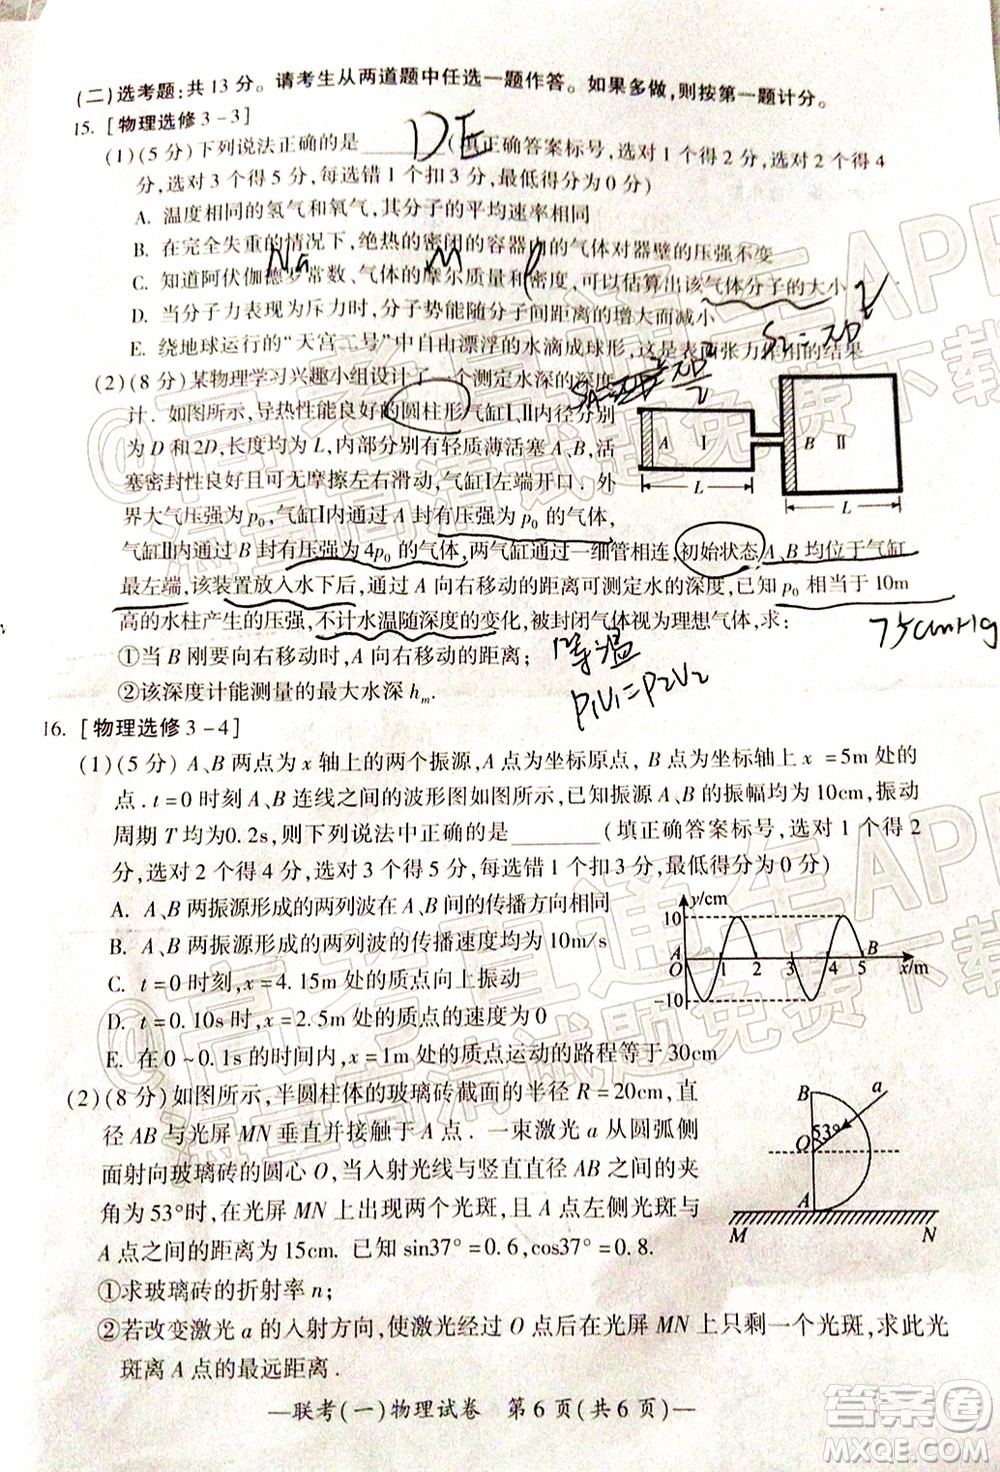 (二)选考题:共13分。请考生从两道题中任选一题作答。如果多做,则按第一题计分。
15.[物理选修3-3]
(1)(5分)下列说法正确的是______(填正确答案标号,选对1个得2分,选对2个得4
DE
分,选对3个得5分,每选错1个扣3分,最低得分为0分)
A. 温度相同的氢气和氧气,其分子的平均速率相同
B. 在完全失重的情况下,绝热的密闭的容器内的气体对器壁的压强不变
C. 知道阿伏伽德罗常数、气体的摩尔质量和密度,可以估算出该气体分子的大小
D. 当分子力表现为斥力时,分子势能随分子间距离的增大而减小
E. 绕地球运行的“天宫二号”中自由漂浮的水滴成球形,这是表面张力作用的结果
(2)(8分)某物理学习兴趣小组设计了一个测定水深的深度
计.如图所示,导热性能良好的圆柱形气缸Ⅰ、Ⅱ内径分别
为D和2D,长度均为L,内部分别有轻质薄活塞A、B,活
塞密封性良好且可无摩擦左右滑动,气缸Ⅰ左端开口.外
界大气压强为p₀,气缸Ⅰ内通过A封有压强为p₀的气体,
气缸Ⅱ内通过B封有压强为4p₀的气体,两气缸通过一细管相连,初始状态A、B均位于气缸
最左端,该装置放入水下后,通过A向右移动的距离可测定水的深度,已知p₀相当于10m
高的水柱产生的压强,不计水温随深度的变化,被封闭气体视为理想气体,求:
①当B刚要向右移动时,A向右移动的距离;
②该深度计能测量的最大水深hₘ.
A Ⅰ B Ⅱ
L L
等温
P₁V₁=P₂V₂
75cmHg
16.[物理选修3-4]
(1)(5分)A、B两点为x轴上的两个振源,A点为坐标原点,B点为坐标轴上x=5m处
的点.t=0时刻A、B连线之间的波形图如图所示,已知振源A、B的振幅均为10cm,振动
周期T均为0.2s,则下列说法中正确的是______(填正确答案标号,选对1个得2
分,选对2个得4分,选对3个得5分,每选错1个扣3分,最低得分为0分)
A. A、B两振源形成的两列波在A、B间的传播方向相同
B. A、B两振源形成的两列波的传播速度均为10m/s
C. t=0时刻,x=4.15m处的质点向上振动
D. t=0.10s时刻,x=2.5m处的质点的速度为0
E. 在0~0.1s的时间内,x=1m处的质点运动的路程等于30cm
y/cm
10
A B
O 1 2 3 4 5 x/m
-10
(2)(8分)如图所示,半圆柱体的玻璃砖截面的半径R=20cm,直
径AB与光屏MN垂直并接触于A点.一束激光a从圆弧侧
面射向玻璃砖的圆心O,当入射光线与竖直直径AB之间的夹
角为53°时,在光屏MN上出现两个光斑,且A点左侧光斑与
A点之间的距离为15cm.已知sin37°=0.6,cos37°=0.8.
①求玻璃砖的折射率n;
②若改变激光a的入射方向,使激光经过O点后在光屏MN上只剩一个光斑,求此光
斑离A点的最远距离.
B a
O 53°
A
M N
—联考(一)物理试卷 第6页(共6页)—
答案圈
MXQE.COM